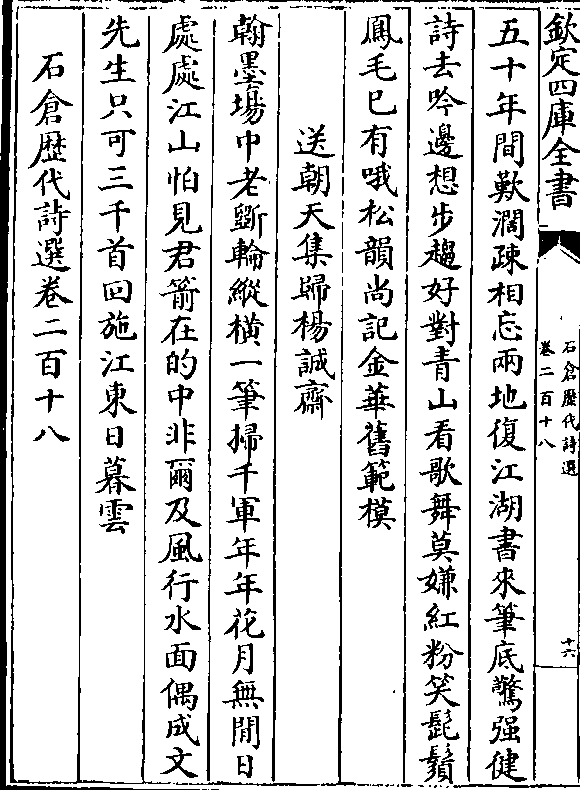 欽定四庫全書
石倉歴代詩選
卷二百十八
十六
五十年間歎濶疎相忘兩地復江湖書來筆底驚强健
詩去吟邊想步趨好對青山看歌舞莫嫌紅粉笑髭鬚
鳳毛已有哦松韻尚記金華舊範模
送朝天集歸楊誠齋
翰墨場中老斵輪縱横一筆掃千軍年年花月無閒日
處處江山怕見君箭在的中非爾及風行水面偶成文
先生只可三千首回施江東日暮雲
石倉歴代詩選卷二百十八